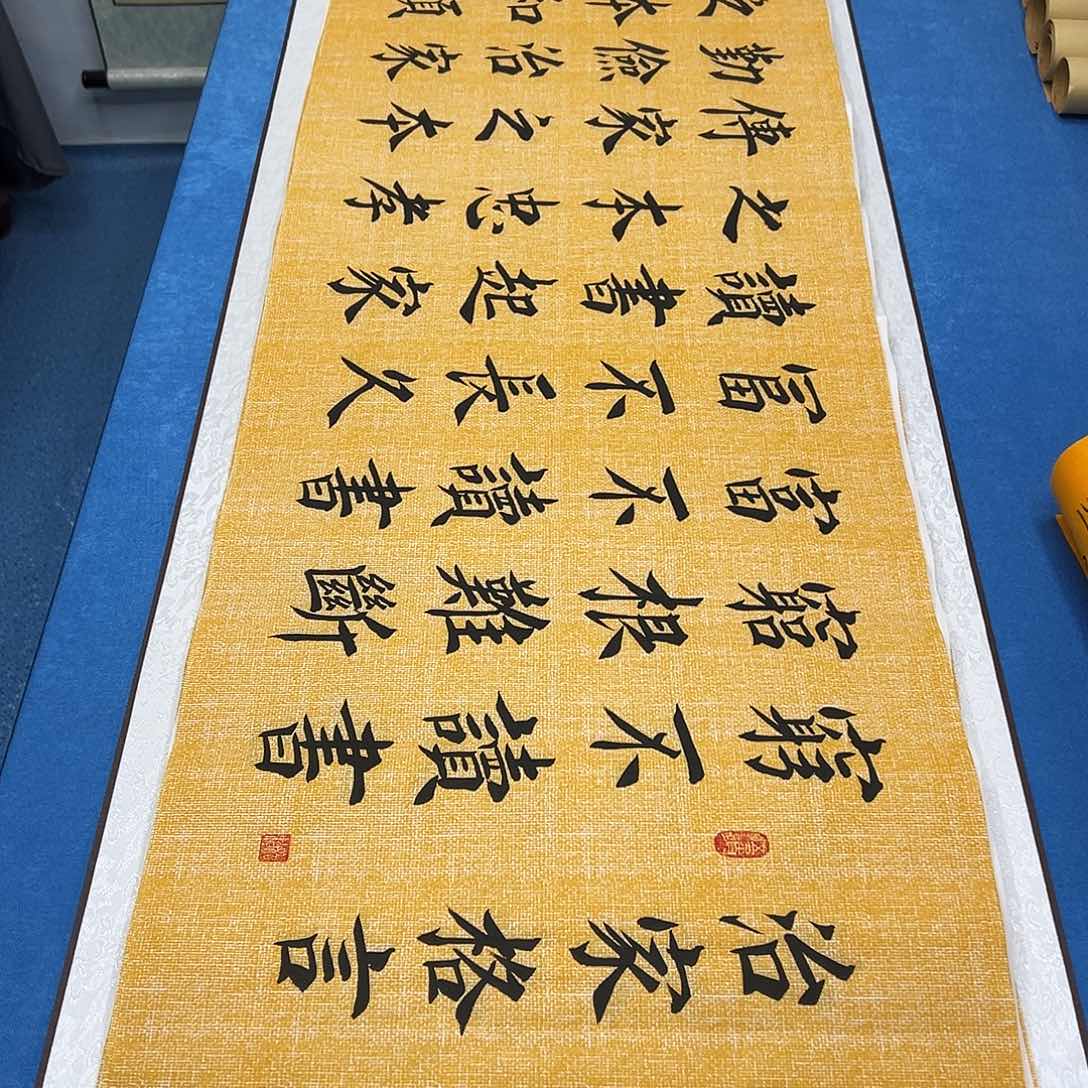 治家格言
窮不讀書
竆根難斷
富不讀書
冨不長久
讀書起家
之本忠孝
傳家之本
勤儉治家
之本和順